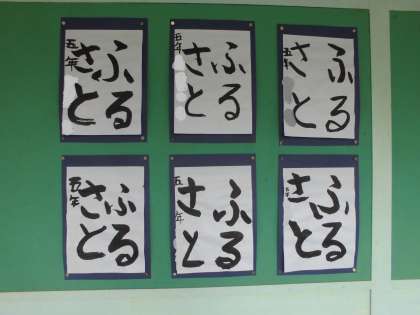 ふる
さと
五年
ふる
さと
五年
ふる
さと
五年
ふる
さと
ふる
さと
五年
ふる
さと
五年